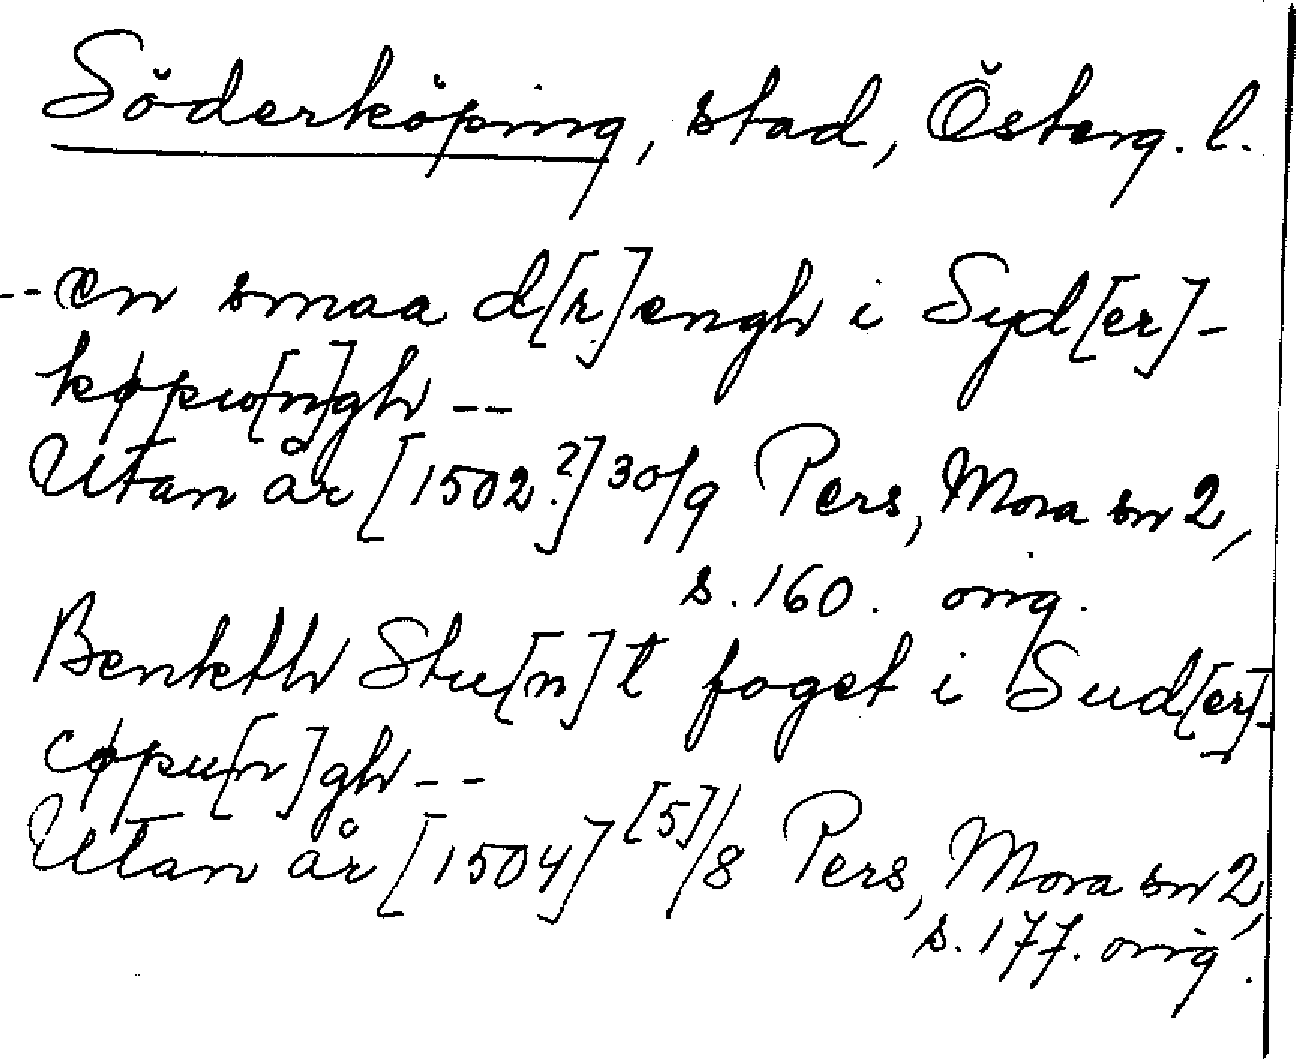 Söderköping, stad, Österg. l.
-- en smaa d[r]engh i Syd[er]-
køpu[n]gh --
Utan år [1502?] 30/9 Pers, Mora sn 2,
s. 160. orig.
Benkth Stu[n]t foget i Sud[er]-
cøpu[n]gh --
Utan år [1504] [5]/8 Pers, Mora sn 2,
s. 177. orig.